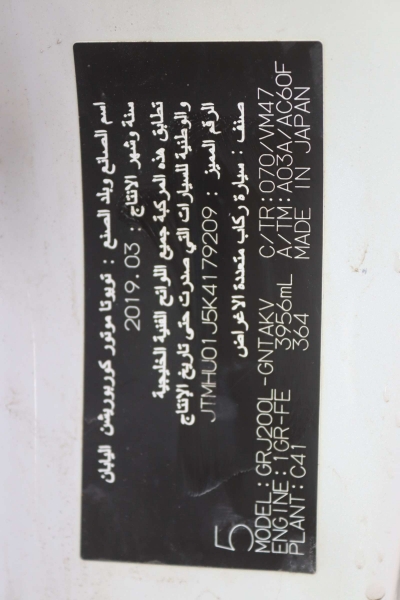 اسم الصانع وبلد الصنع : تويوتا موتور كوربوريشن اليابان
سنة وشهر الإنتاج : 2019.03
تطابق هذه المركبة جميع اللوائح الفنية الخليجية
والوطنية للسيارات التي صدرت حتى تاريخ الإنتاج
الرقم المميز : JTMHU01J5K4179209
صنف : سيارة ركاب متعددة الاغراض
5
MODEL:GRJ200L-GNTAKV C/TR:070/VM47
ENGINE:1GR-FE 3956mL A/TM:A03A/AC60F
PLANT:C41 364 MADE IN JAPAN